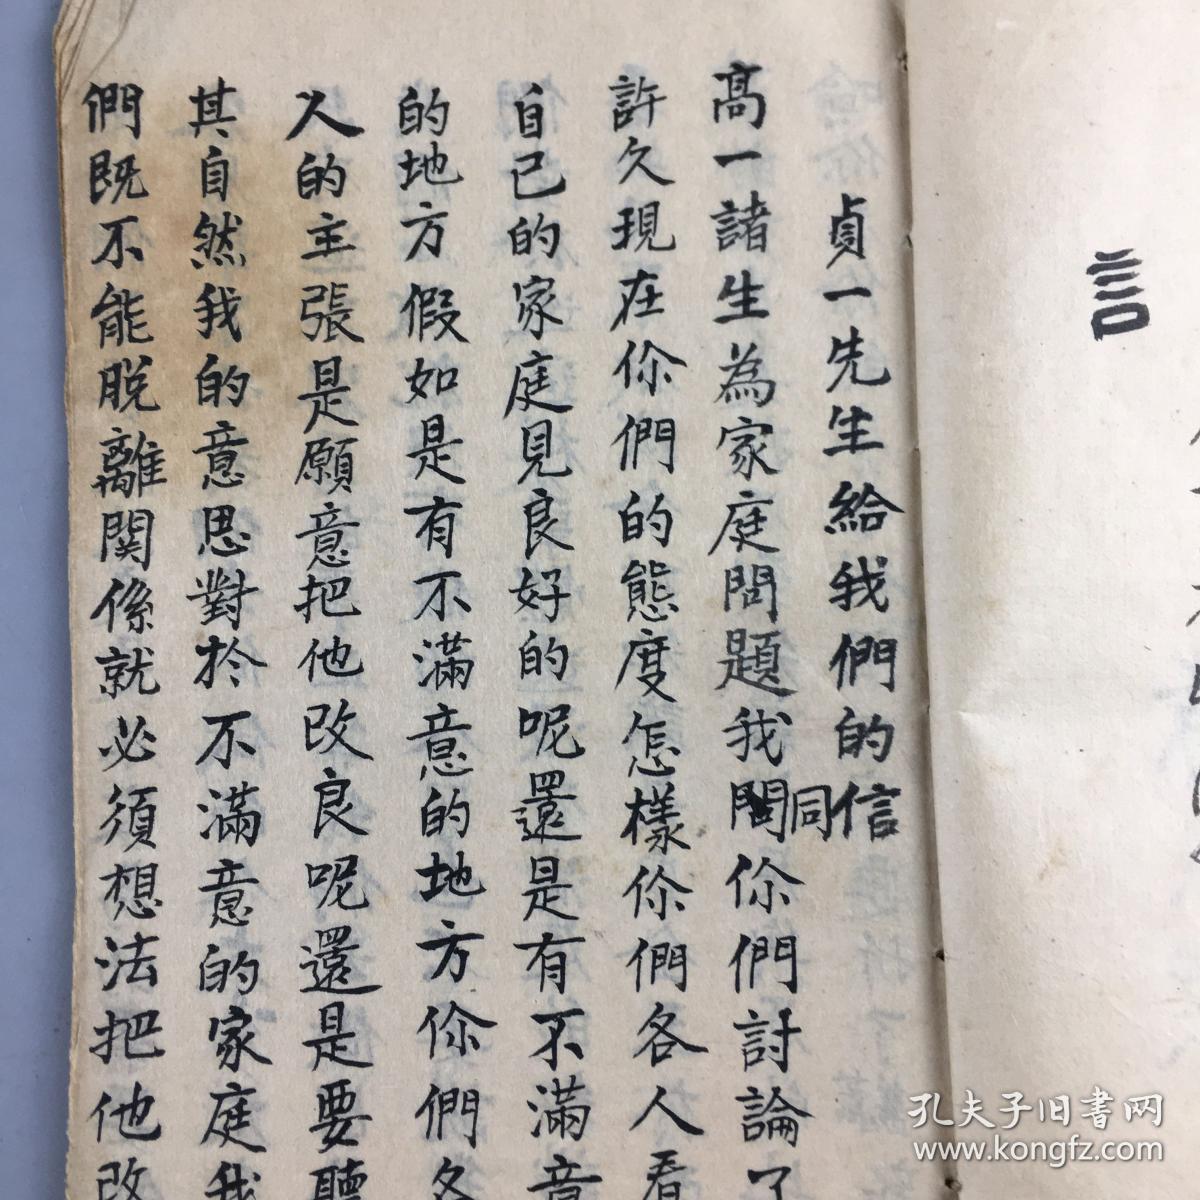 言
貞一先生給我們的信
高一諸生為家庭問題我閣同你們討論了
許久現在你們的態度怎樣你們各人看
自己的家庭見良好的呢還是有不滿意
的地方假如是有不滿意的地方你們各
人的主張是願意把他改良呢還是要聽
其自然我的意思對於不滿意的家庭我
們既不能脫離関係就必須想法把他改
孔夫子旧書网
www.kongfz.com